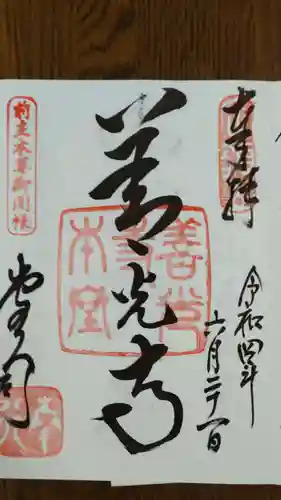 奉拝
令和四年
六月二十一日
善光寺
善光寺本堂
前立本尊御開帳